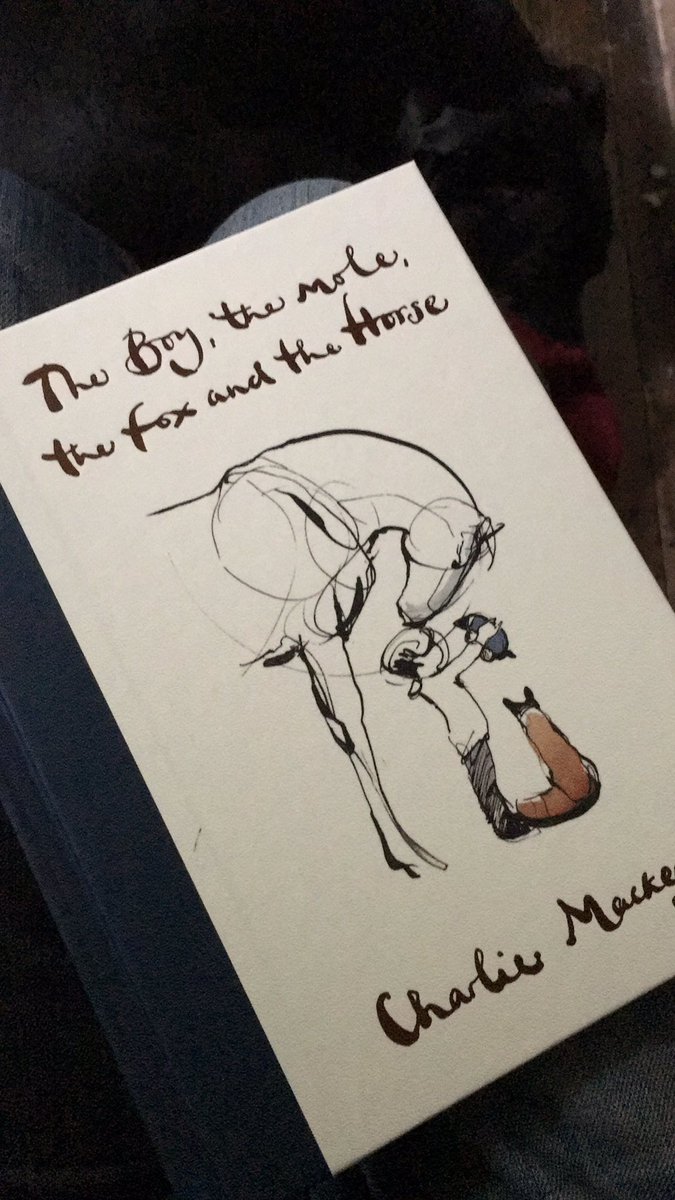 The Boy, the mole,
the fox and the Horse
Charlie